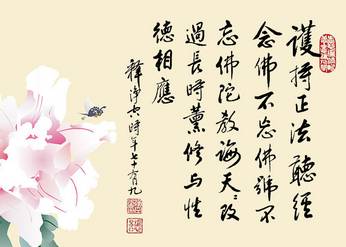 護持正法聽經
念佛不忘佛號不
忘佛陀教誨天々改
過長時薰修与性
德相應
釋淨空時年七十有九